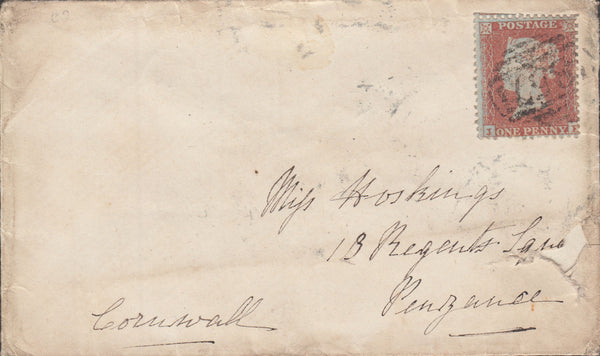 POSTAGE
ONE PENNY
Miss Hoskings
18 Regents Lane
Penzance
Cornwall